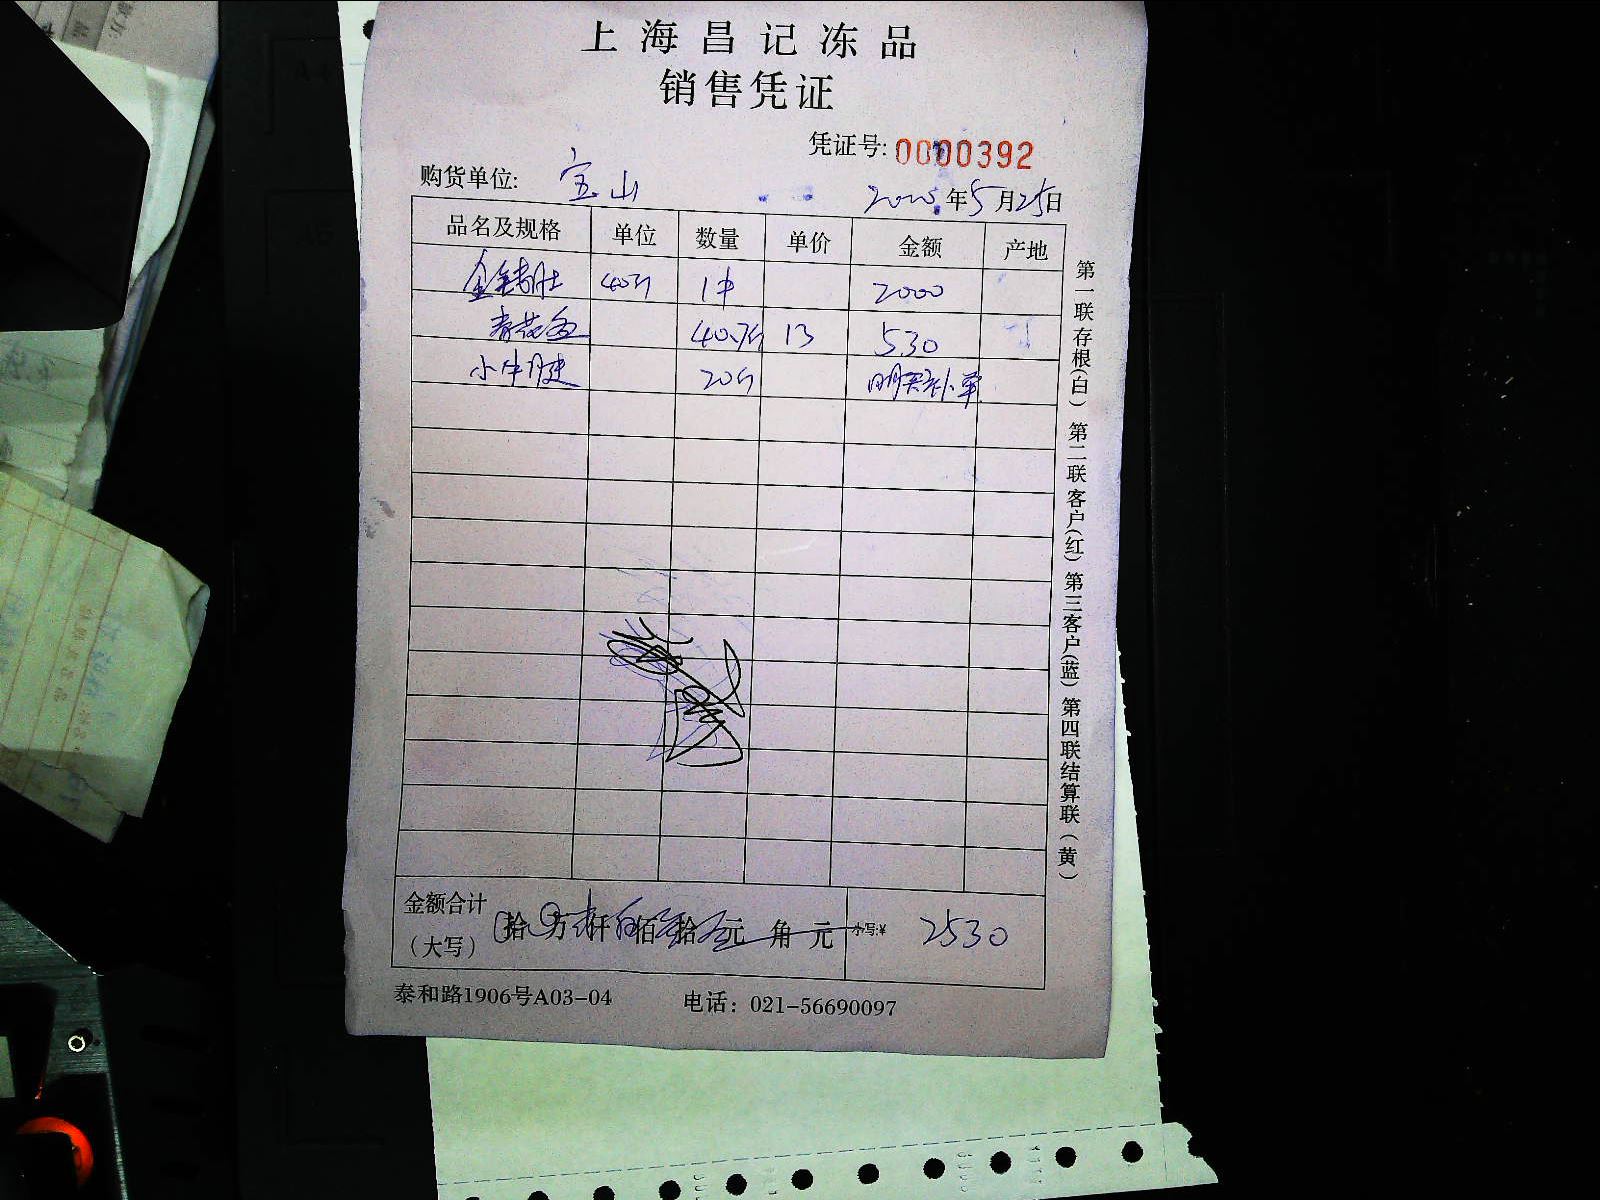 上海昌记冻品
销售凭证
凭证号: 0000392
购货单位: 宝山 年5月25日
品名及规格 单位 数量 单价 金额 产地
金钱肚 40斤 1件 2000
青花鱼 40.7斤 13 530
小牛腱 20斤 明天补单
金额合计
(大写) 拾 万 仟 佰 拾 元 角 元 小写:¥ 2530
泰和路1906号A03-04 电话: 021-56690097
第一联存根(白) 第二联客户(红) 第三客户(蓝) 第四联结算联(黄)